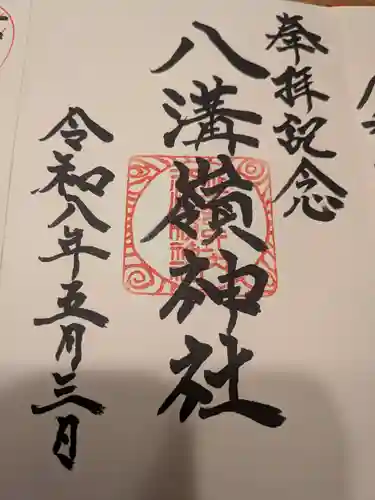 奉拝記念
八溝嶺神社
令和八年五月三日